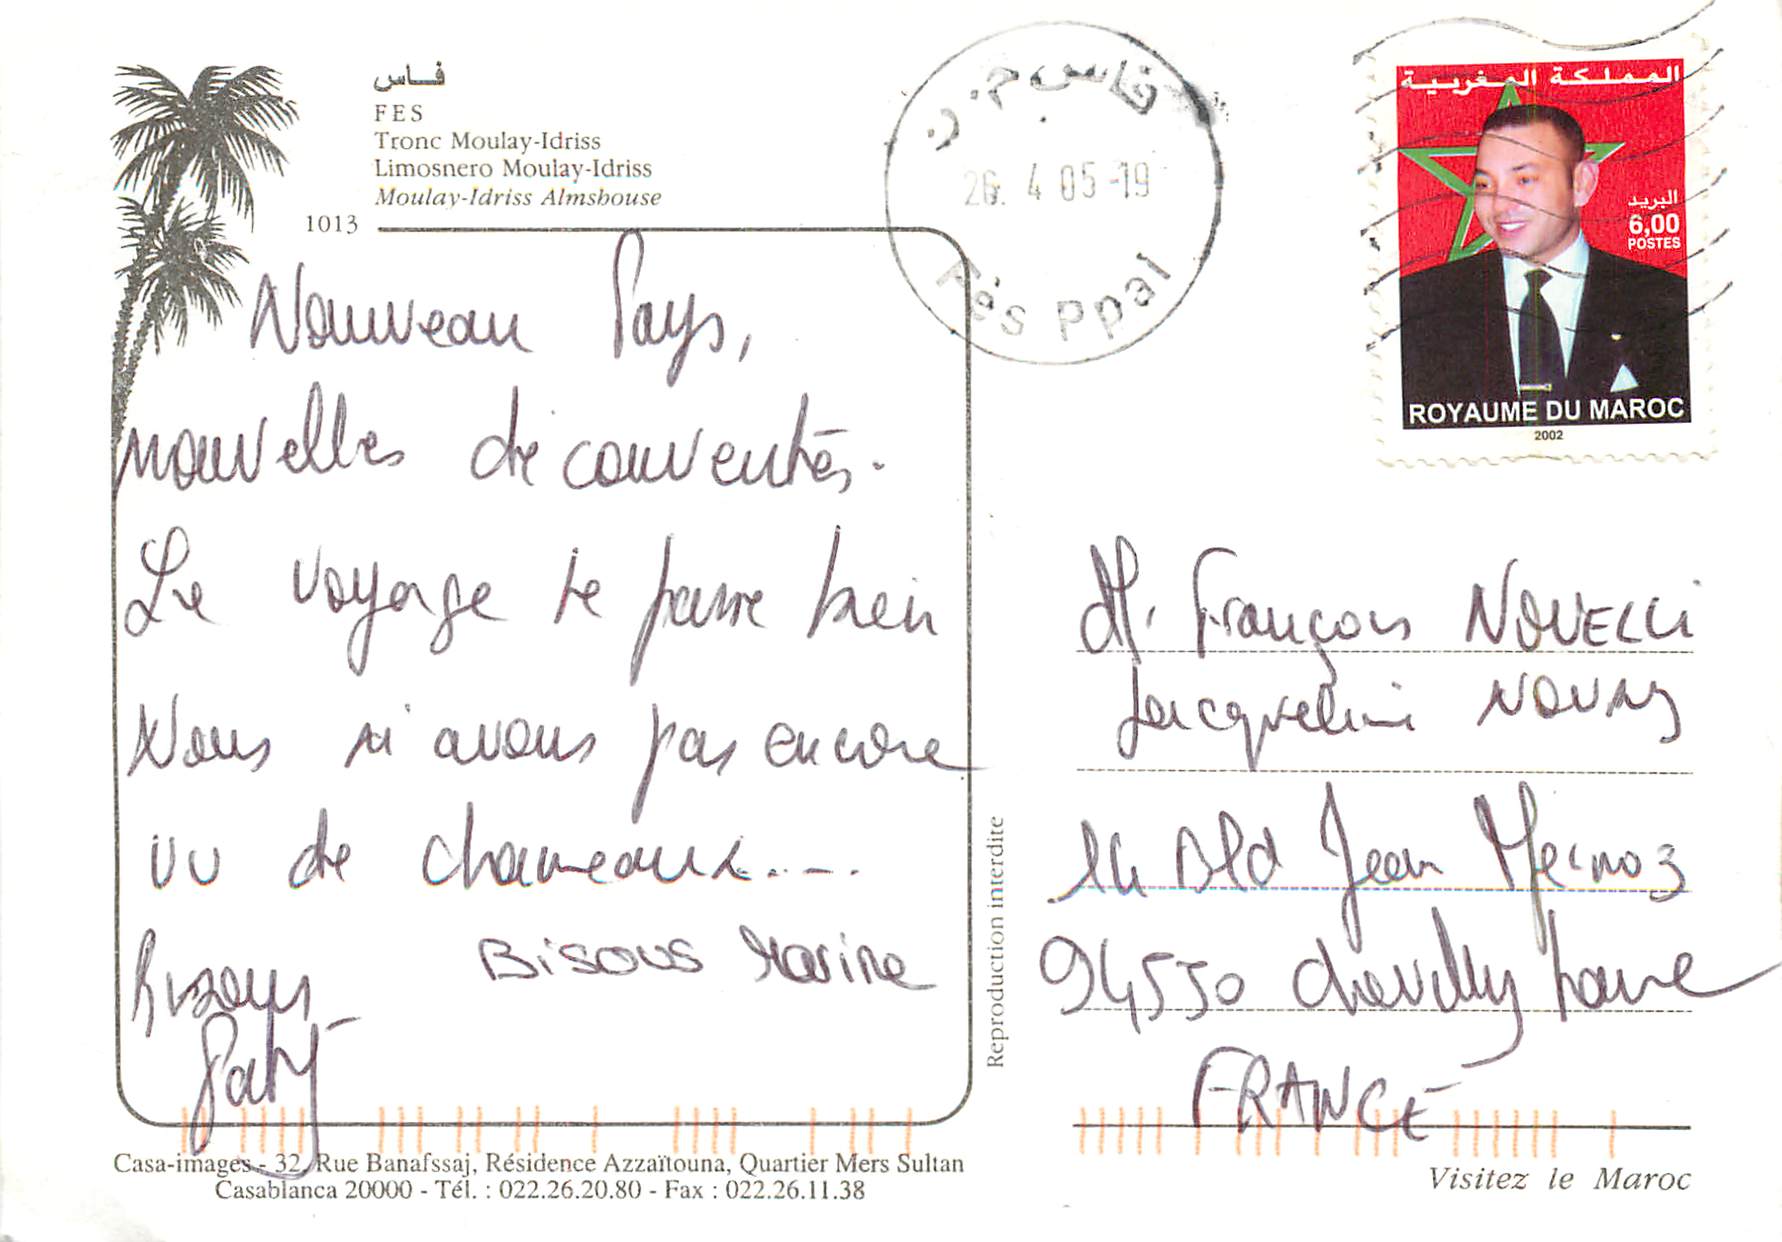 فاس
FES
Tronc Moulay-Idriss
Limosnero Moulay-Idriss
Moulay-Idriss Almshouse
1013
Nouveau Pays,
nouvelles découvertes.
Le voyage se passe bien
Nous n'avons pas encore
vu de chameaux....
Bisous
Paty
Bisous Marine
Casa-images - 32, Rue Banafssaj, Résidence Azzaïtouna, Quartier Mers Sultan
Casablanca 20000 - Tél. : 022.26.20.80 - Fax : 022.26.11.38
Reproduction interdite
فاس ج.ر
26. 4 05-19
Fès Ppal
المملكة المغربية
البريد
6,00
POSTES
ROYAUME DU MAROC
2002
M. François NOVELLI
Jacqueline
14 Bld Jean Mermoz
94550 Chevilly Larue
FRANCE
Visitez le Maroc